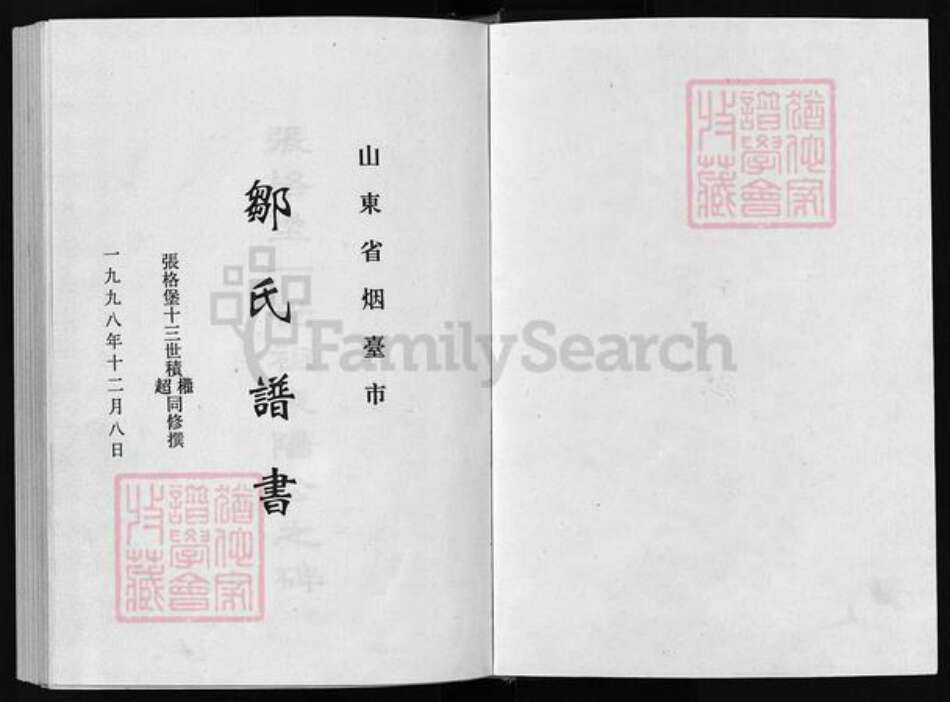 山東省烟臺市
鄒氏譜書
張格堡十三世積超同修撰
一九九八年十二月八日
猶他家譜學會收藏
猶他家譜學會收藏
FamilySearch